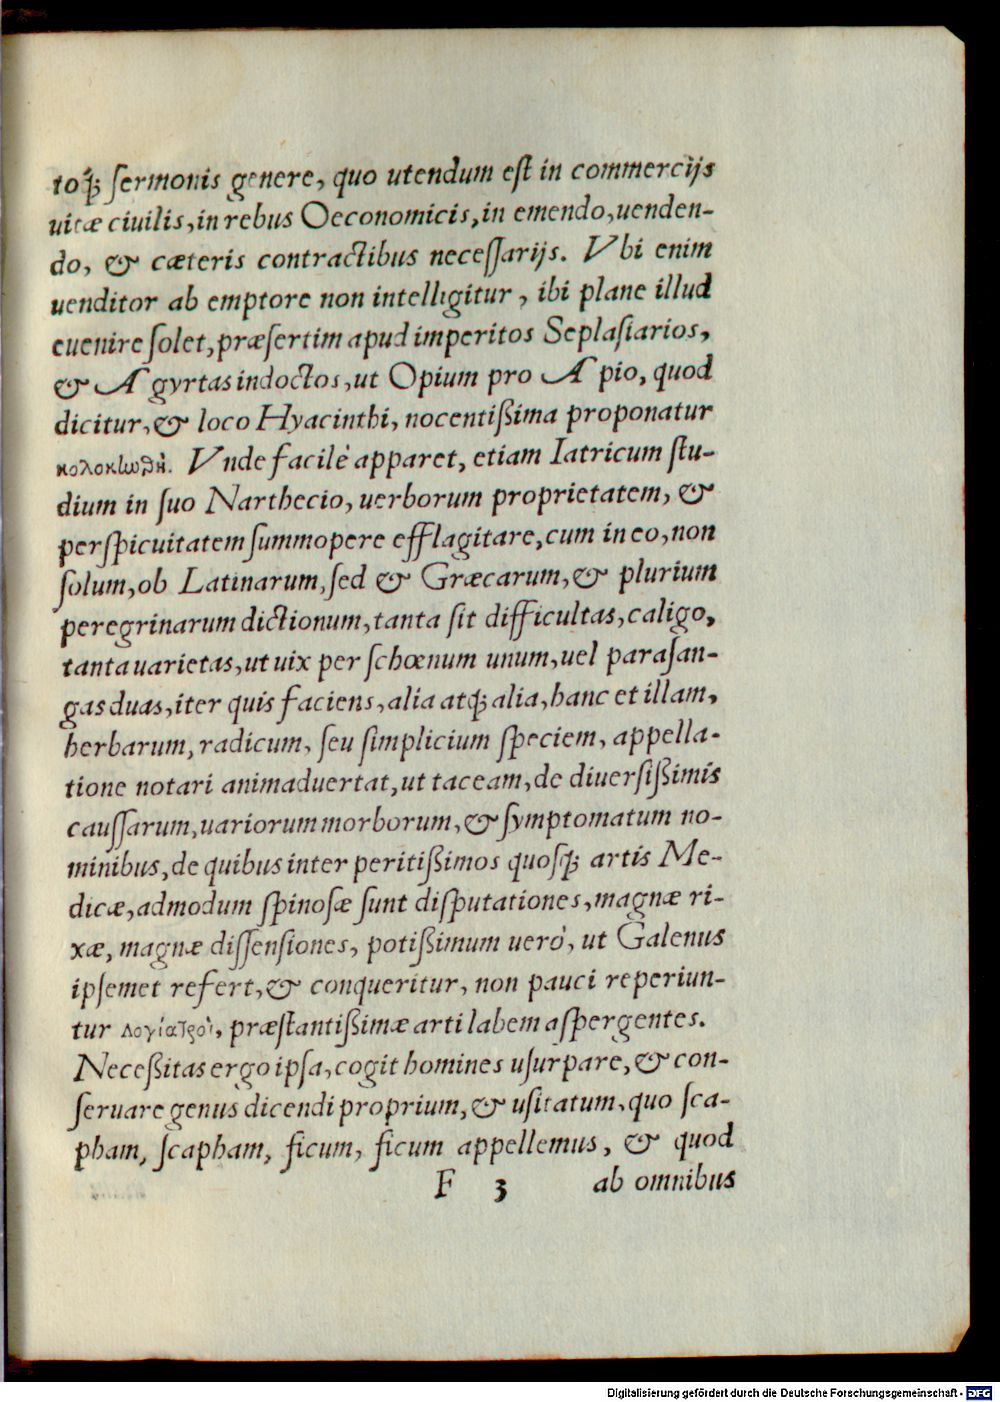 toq́; ſermonis genere, quo utendum eſt in commercijs
uitæ ciuilis, in rebus Oeconomicis, in emendo, uenden-
do, & cæteris contractibus neceſſarijs. Vbi enim
uenditor ab emptore non intelligitur, ibi plane illud
euenire ſolet, præſertim apud imperitos Seplaſiarios,
& Agyrtas indoctos, ut Opium pro Apio, quod
dicitur, & loco Hyacinthi, nocentißima proponatur
Vnde facilè apparet, etiam Iatricum ſtu-
dium in ſuo Narthecio, uerborum proprietatem, &
perſpicuitatem ſummopere efflagitare, cum in eo, non
ſolum, ob Latinarum, ſed & Græcarum, & plurium
peregrinarum dictionum, tanta ſit difficultas, caligo,
tanta uarietas, ut uix per ſchœnum unum, uel paraſan-
gas duas, iter quis faciens, alia atq́; alia, hanc et illam,
herbarum, radicum, ſeu ſimplicium ſpeciem, appella-
tione notari animaduertat, ut taceam, de diuerſißimis
cauſſarum, uariorum morborum, & ſymptomatum no-
minibus, de quibus inter peritißimos quoſq́; artis Me-
dicæ, admodum ſpinoſæ ſunt diſputationes, magnæ ri-
xæ, magnæ diſſenſiones, potißimum uerò, ut Galenus
ipſemet refert, & conqueritur, non pauci reperiun-
tur λογίατροὶ, præſtantißimæ arti labem aſpergentes.
Neceßitas ergo ipſa, cogit homines uſurpare, & con-
ſeruare genus dicendi proprium, & uſitatum, quo ſca-
pham, ſcapham, ficum, ficum appellemus, & quod
F 3 ab omnibus
Digitalisierung gefördert durch die Deutsche Forschungsgemeinschaft - DFG